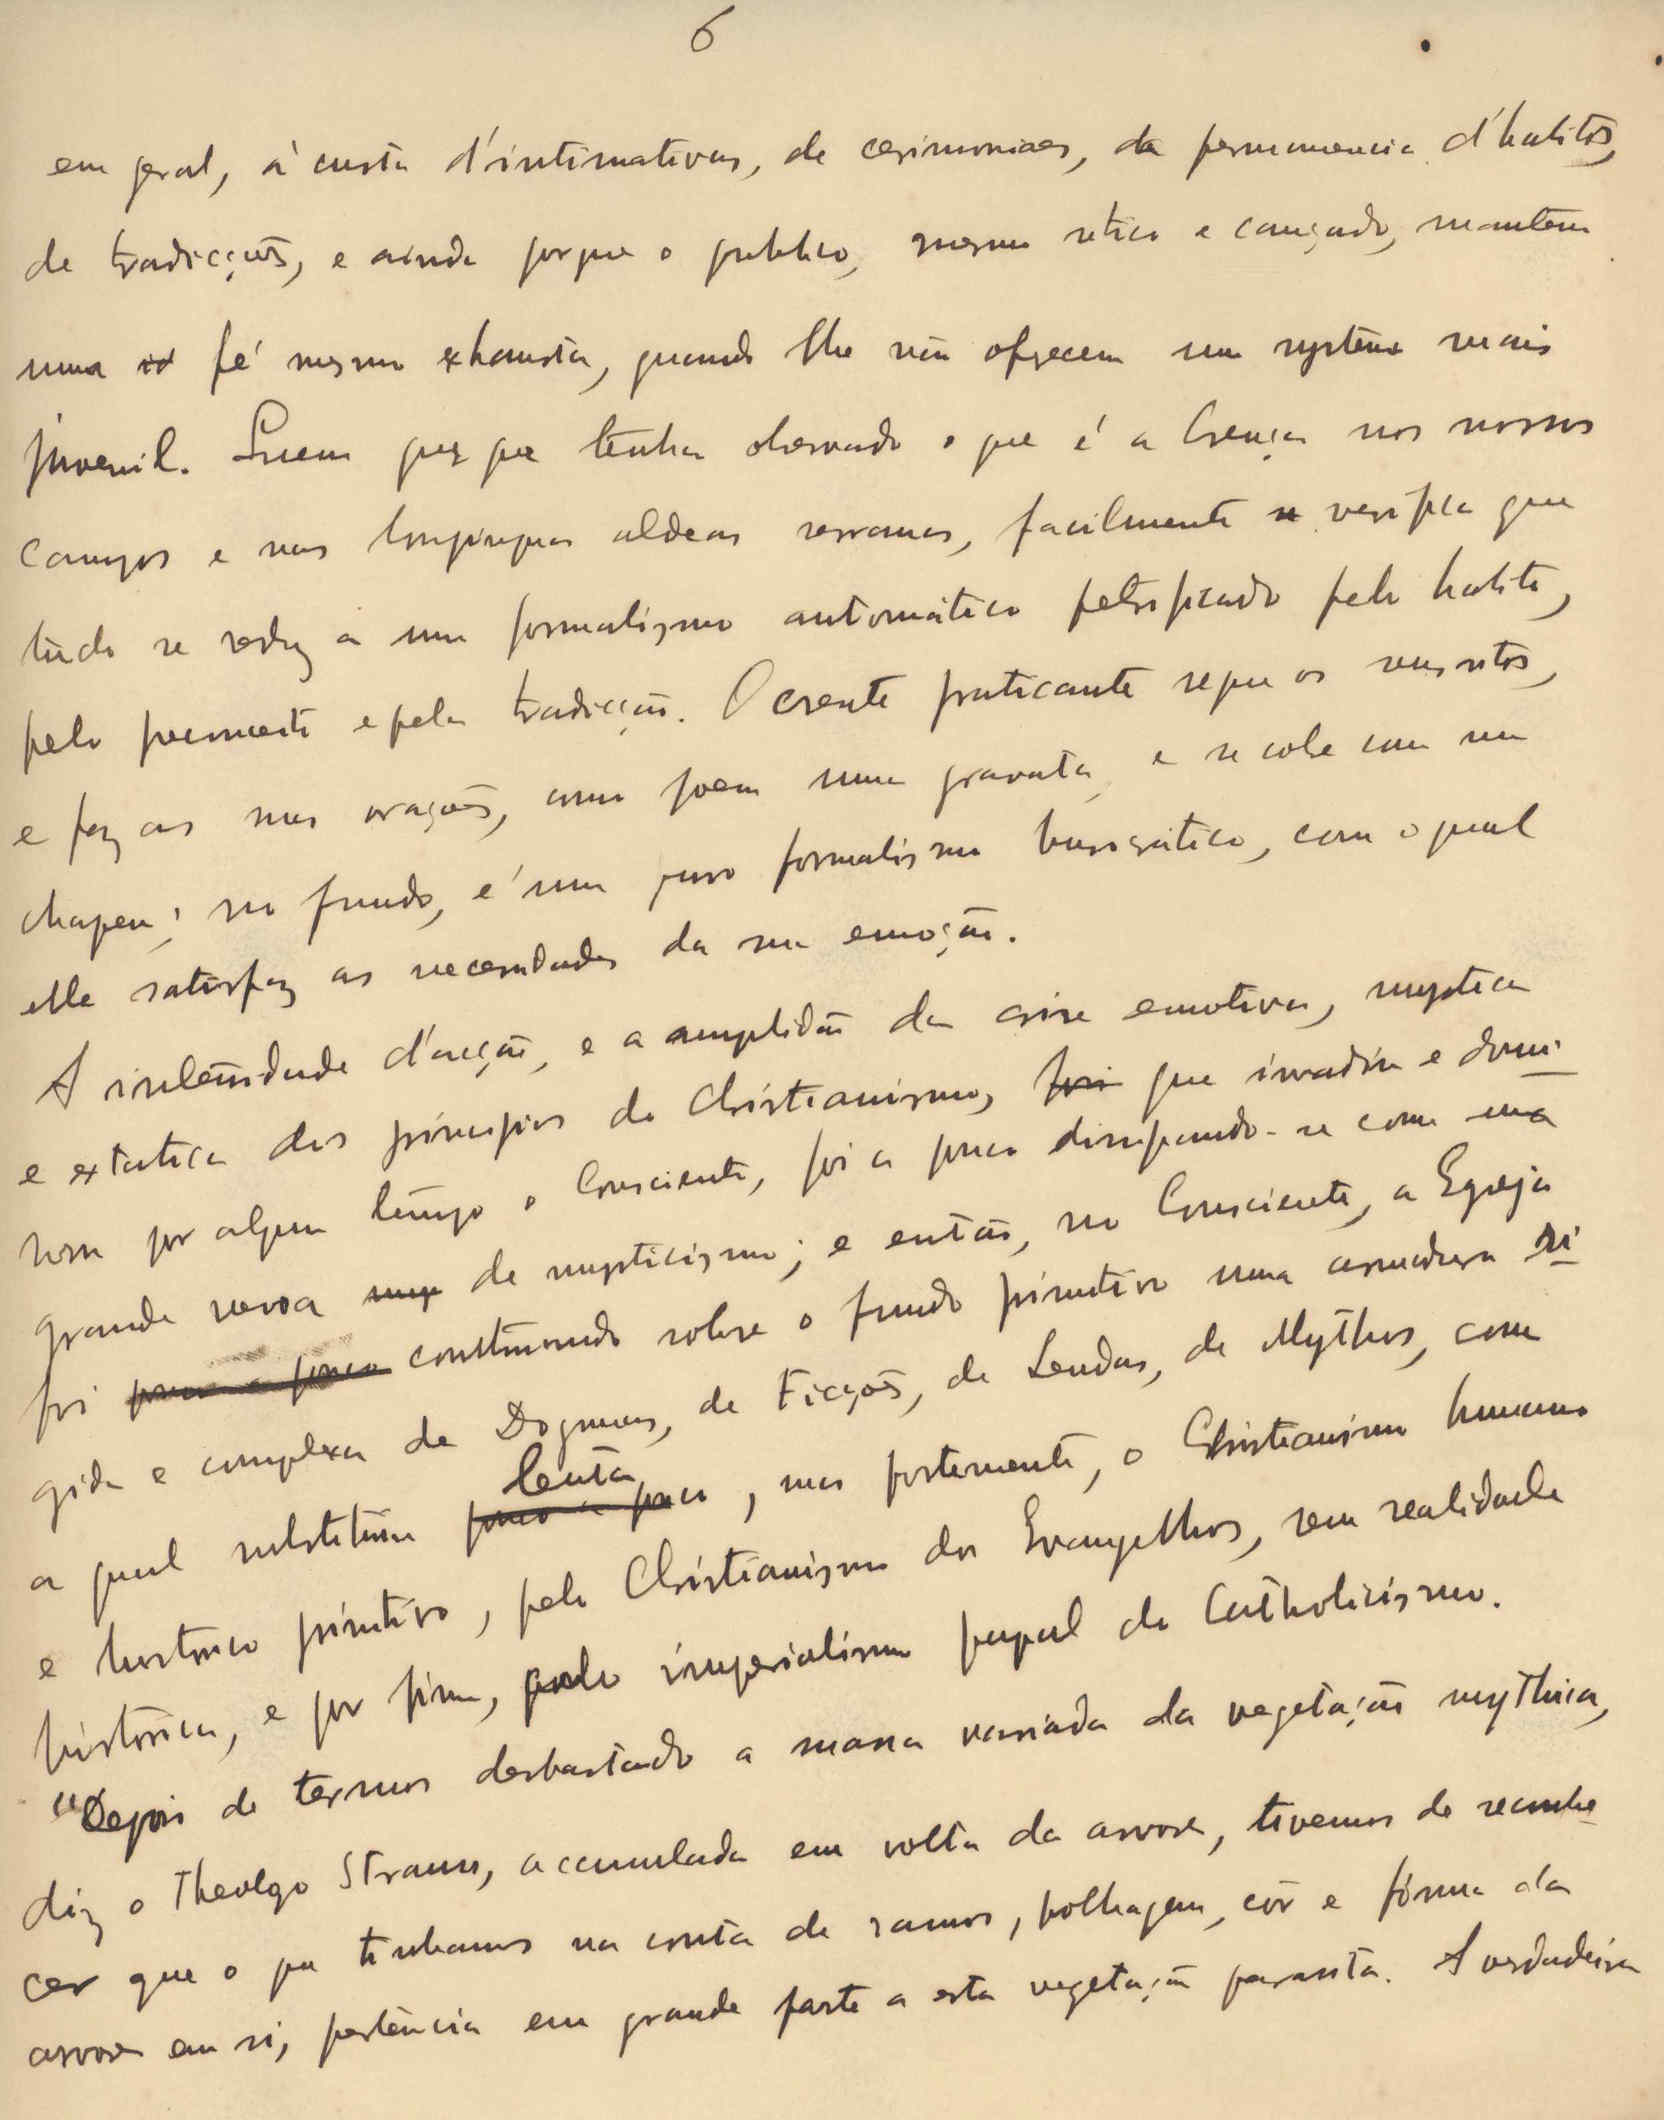 6
em geral, á custa d'intimativas, de cerimoniaes, da permanencia d'habitos,
de tradicções, e ainda porque o publico, mesmo cetico e cançado, mantem
uma fé mesmo exhausta, quando lhe não ofrecem um systema mais
juvenil. Quem quer que tenha observado o que é a Crença nos nossos
campos e nas longinquas aldeas serranas, facilmente verifica que
tudo se reduz a um formalismo automático petrificado pelo habito,
pelo preconceito e pela tradicção. O crente praticante segue os seus ritos,
e faz as suas orações, como poem uma gravata, e se cobre com um
chapeu; no fundo, é um puro formalismo burocrático, com o qual
elle satisfaz as necessidades da sua emoção.
A intensidade d'acção, e a amplidão da crise emotiva, mystica
e extatica dos principios do Christianismo, foi que invadiu e domi-
nou por algum tempo o Consciente, foi a pouco dissipando-se como uma
grande nevoa de mysticismo; e então, no Consciente, a Egreja
foi pouco a pouco construindo sobre o fundo primitivo uma armadura ri-
gida e complexa de Dogmas, de Ficções, de Lendas, de Mythos, com
lenta
a qual substituiu pouco a pouco, mas fortemente, o Christianismo humano
e historico primitivo, pelo Christianismo dos Evangelhos, sem realidade
historica, e por fim, pelo imperialismo papal do Catholicismo.
"Depois de termos desbastado a massa variada da vegetação mythica,
diz o Theologo Strauss, accumulada em volta da arvore, tivemos de reconhe-
cer que o que tinhamos na conta de ramos, folhagem, côr e fórma da
arvore em si, pertencia em grande parte a esta vegetação parasita. A verdadeira